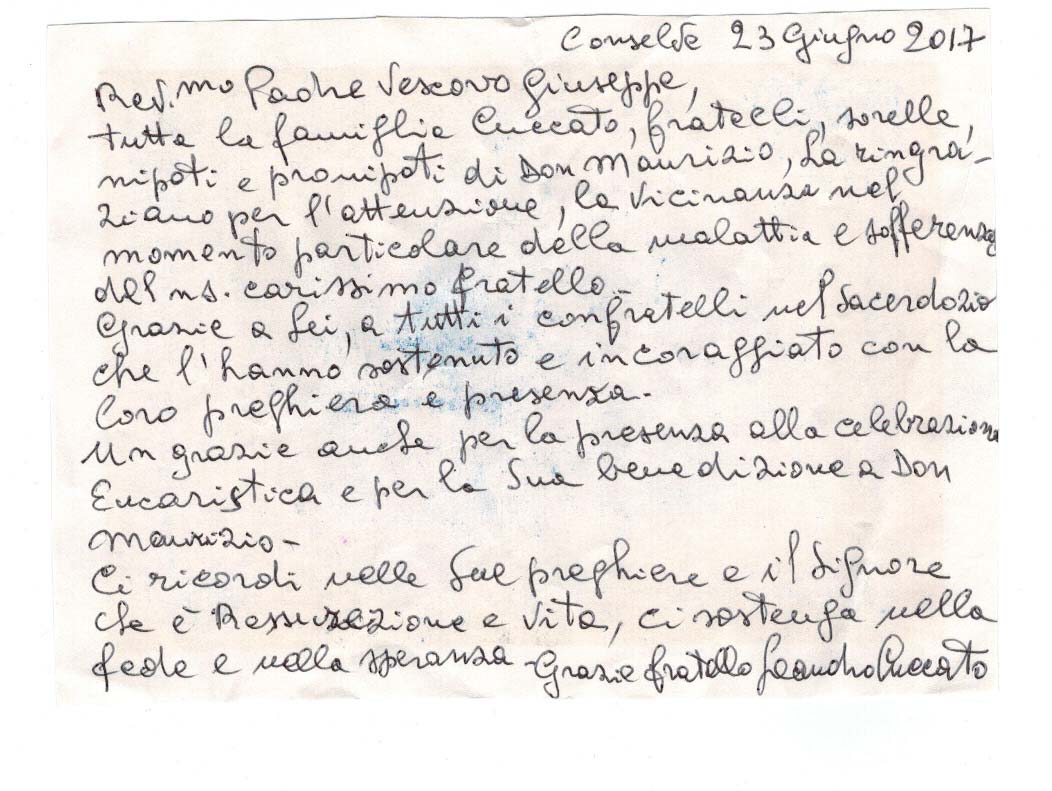 Conselve 23 Giugno 2017
Rev.mo Padre Vescovo Giuseppe,
tutta la famiglia Cuccato, fratelli, sorelle,
nipoti e pronipoti di Don Maurizio, La ringra-
ziano per l'attenzione, la vicinanza nel
momento particolare della malattia e sofferenza
del ns. carissimo fratello-
Grazie a Lei, a tutti i confratelli nel Sacerdozio
che l'hanno sostenuto e incoraggiato con la
loro preghiera e presenza-
Un grazie anche per la presenza alla celebrazione
Eucaristica e per la Sua benedizione a Don
Maurizio-
Ci ricordi nelle Sue preghiere e il Signore
che è Ressurezione e Vita, ci sostenga nella
fede e nella speranza-Grazie fratello Leandro Cuccato